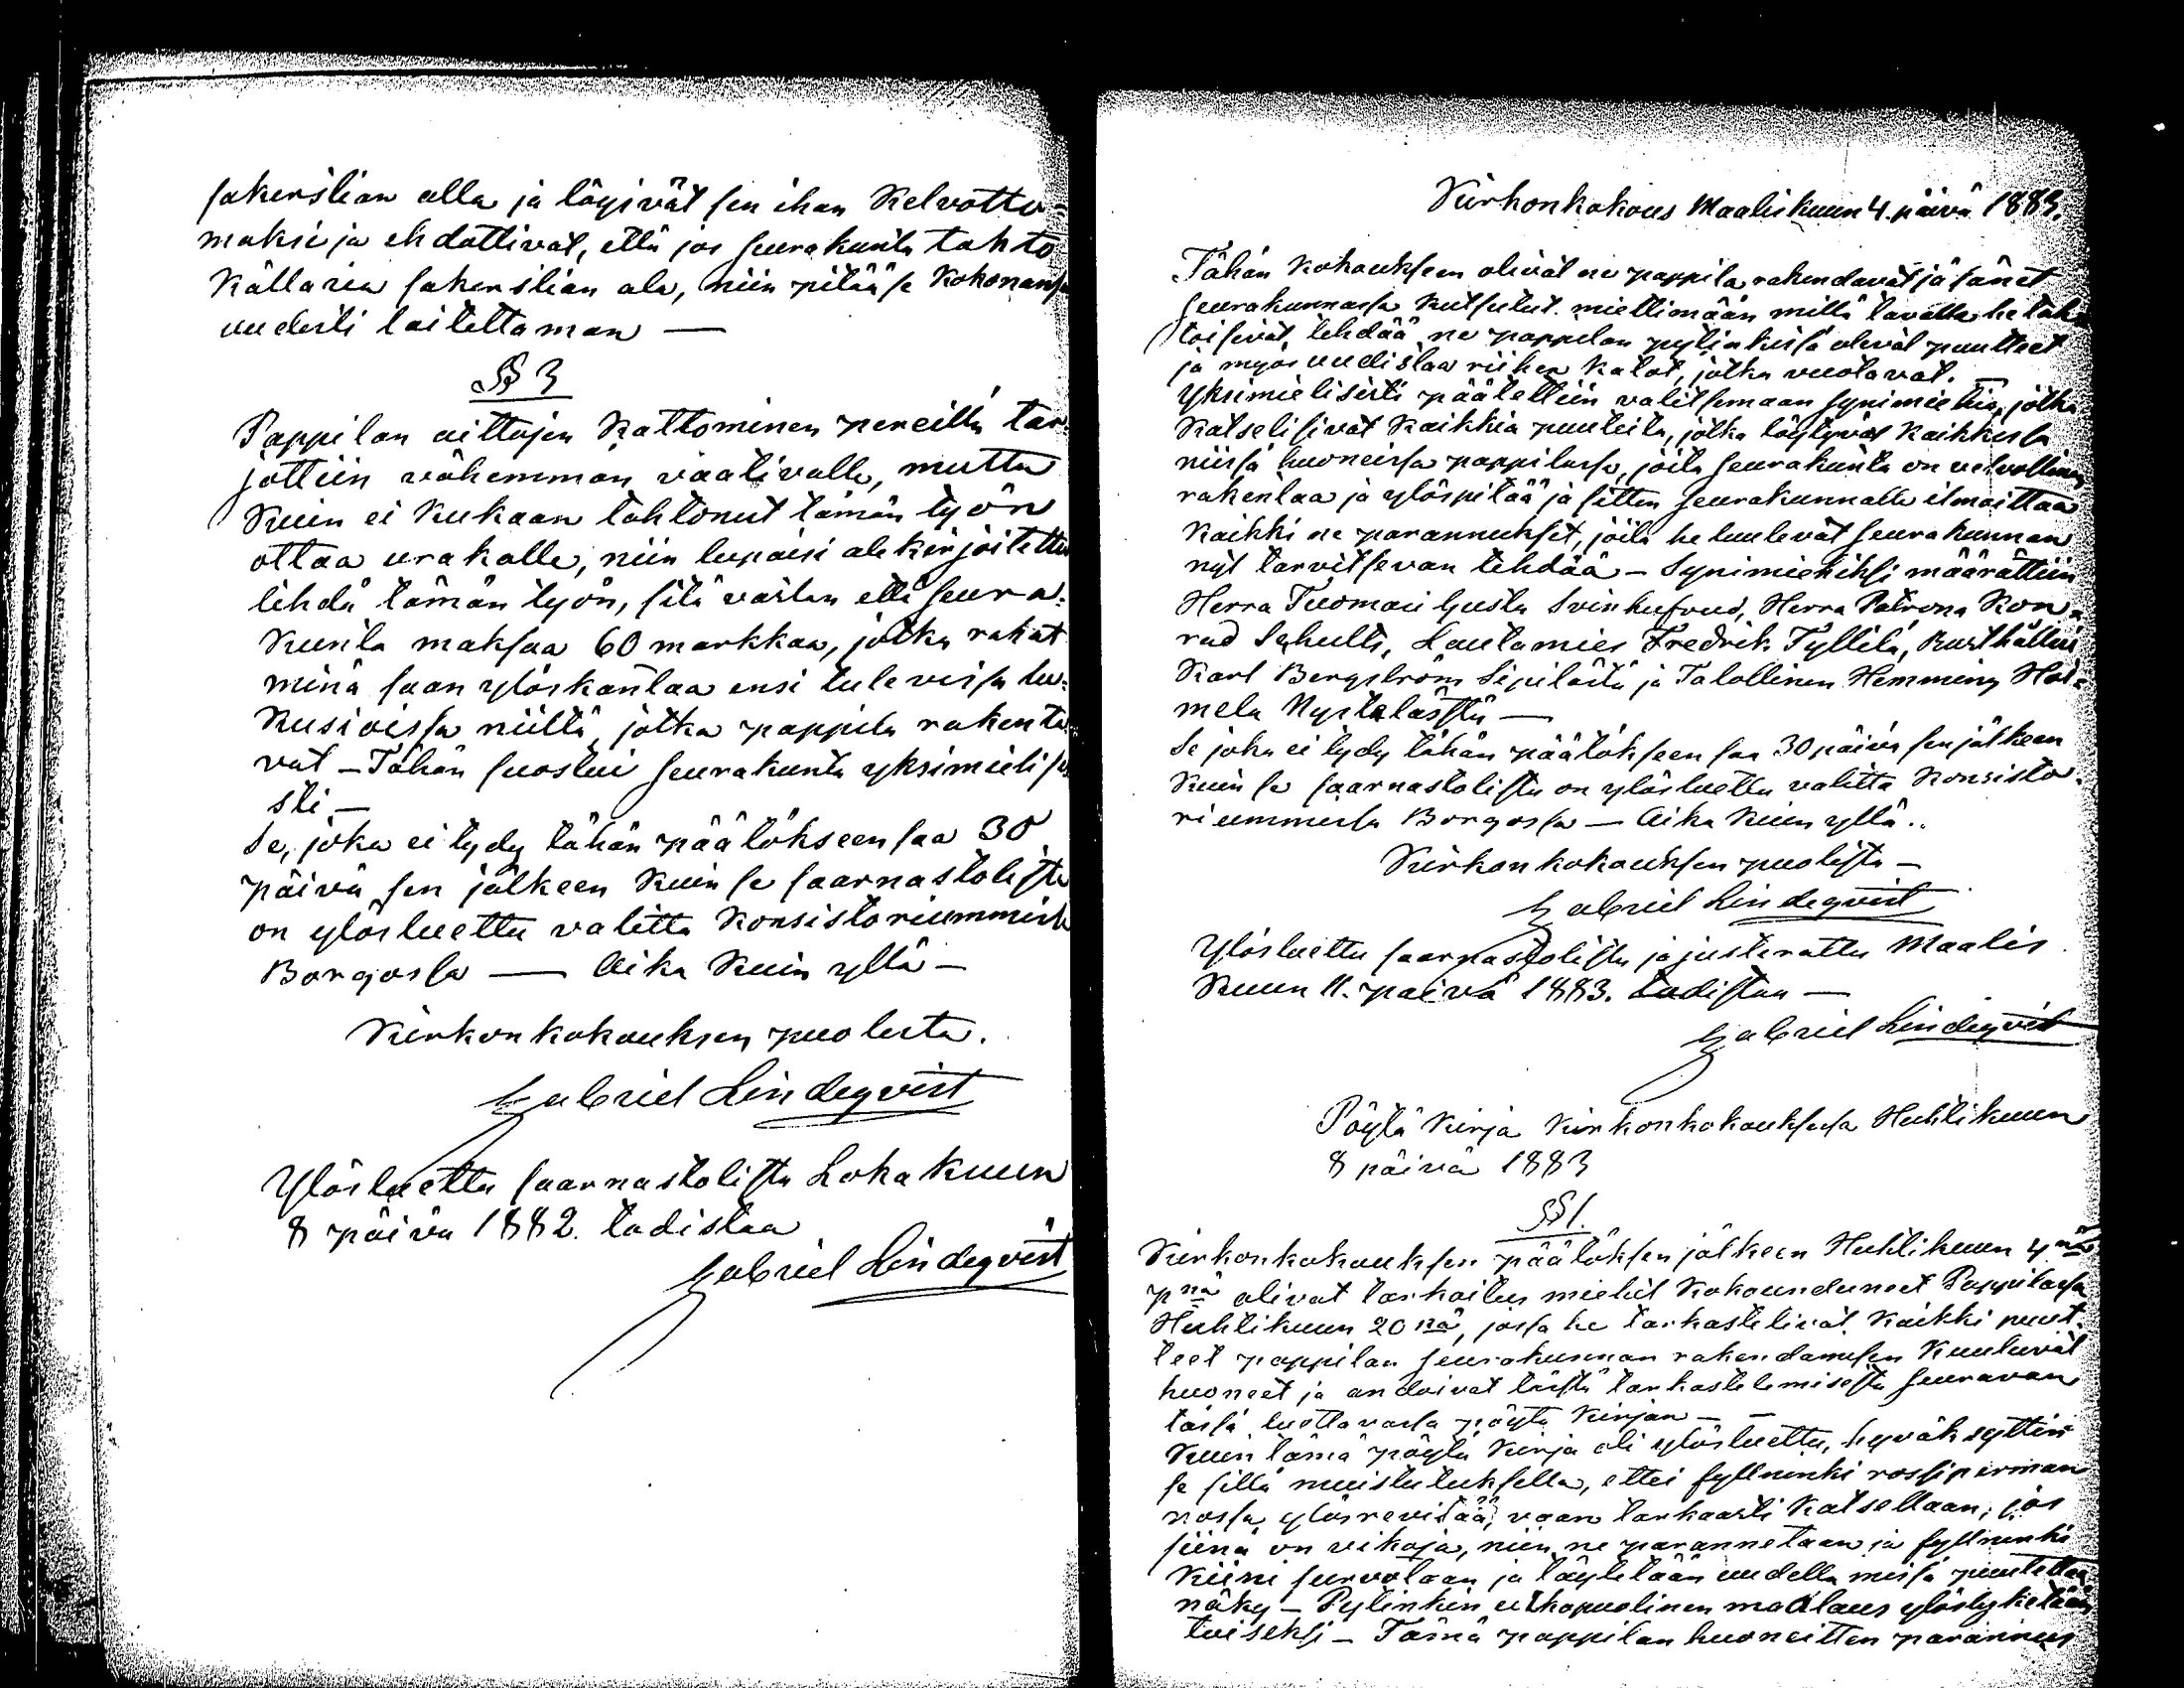 sakerstian alla ja löysivät sen ihan kelvotto-
maksi ja ehdottivat, että jos seurakunta tahto
källaria sakerstian ala, niin pitää se kokonansa
uudesti laitettaman —
§ 3
Pappilan aittojen kattominen pereillä tar-
jottiin vähemmän vaativalle, mutta
kuin ei kukaan tahtonut tämän työn
ottaa urakalle, niin lupaisi alekirjoitettu
tehdä tämän työn, sitä vastan että seura-
kunta maksaa 60 markkaa, jotka rahat
minä saan ylöskantaa ensi tulevissa lu-
kusioissa niiltä, jotka pappila rakenta-
vat — Tähän suostui seurakunta yksimielise
sti —
Se, joka ei tydy tähän päätökseen saa 30
päivä sen jälkeen kuin se saarnastolista
on ylösluettu valitta Konsistoriummissa
Borgossa — Aika kuin yllä —
Kirkonkokouksen puolesta.
Gabriel Lindeqvist
Ylösluettu saarnastolista Lokakuun
8 päivä 1882. todistaa
Gabriel Lindeqvist
Kirkonkokous Maaliskuun 4. päivä 1883.
Tähän kokoukseen olivat ne pappila rakendavat jäsänet
seurakunnassa kutsutut miettimään millä tavalla he tah-
toisivat tehdää ne pappilan pytinkissä olevat puutteet
ja myös uudistaa riihen katot, jotka vuotavat. —
Yksimielisesti päätettiin valitsemaan synimiehiä, jotka
katselisivat kaikkia puuteita, jotka löytyvät kaikkissa
niissä huoneissa pappilassa, joita seurakunta on velvollinen
rakentaa ja ylöspitää ja sitten seurakunnalle ilmoittaa
kaikki ne parannukset, joita he luulevat seurakunnan
nyt tarvitsevan tehdää — Synimiehiksi määrättiin
Herra Tuomari Gusta Svinhufvud, Herra Patrona Kon-
rad Schultz, Lautamies Fredrik Tyllilä, Rusthållari
Karl Bergström Sipilästä ja Talollinen Hemming Hei-
mela Nystalasstä —
Se joka ei tydy tähän päätökseen saa 30 päivä sen jälkeen
kuin se saarnastolista on ylösluettu valitta Konsisto-
riummissa Borgossa — Aika kuin yllä..
Kirkonkokouksen puolesta —
Gabriel Lindeqvist
Ylösluettu saarnastolista ja justerattu Maalis
kuun 11. päivä 1883. todistaa —
Gabriel Lindeqvist
Pöytä kirja kirkonkokouksesa Huhtikuun
8 päivä 1883
§ 1.
Kirkonkokouksen päätöksen jälkeen Huhtikuun 4 nä
p nä olivat tarkoitus miehet kokoundeneet Pappilassa
Huhtikuun 20 nä, jossa he tarkastelivat kaikki puut-
teet pappilan seurakunnan rakendamisen kuuluvat
huoneet ja andoivat tästä tarkastelemisesta seuravan
tässä luettavassa pöytä kirjan — —
Kuin tämä pöytä kirja oli ylösluettu, hyväksyttiin
se sillä muistutuksella, ettei fyllninki rossiperman
nossa ylösrevitää, vaan tarkaasti katsellaan, jos
siinä on vikoja, niin ne parannetaan ja fyllninki
kiini survotaan ja täytetään uudella missä puutetta
näky — Pytinkin ulkopuolinen maalaus ylöslyketään
toiseksi — Tämä pappilan huoneitten parannus